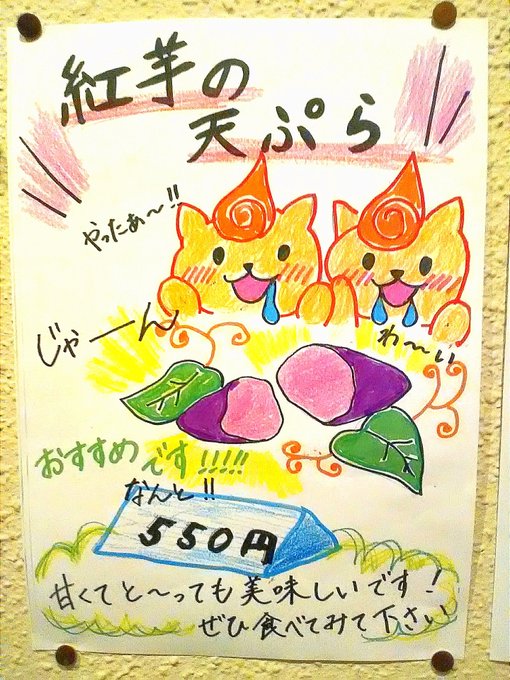 紅芋の
天ぷら
やったぁ〜!!
じゃーん
わ〜い
おすすめです!!!!!
なんと!!
550円
甘くてと〜っても美味しいです!
ぜひ食べてみて下さい